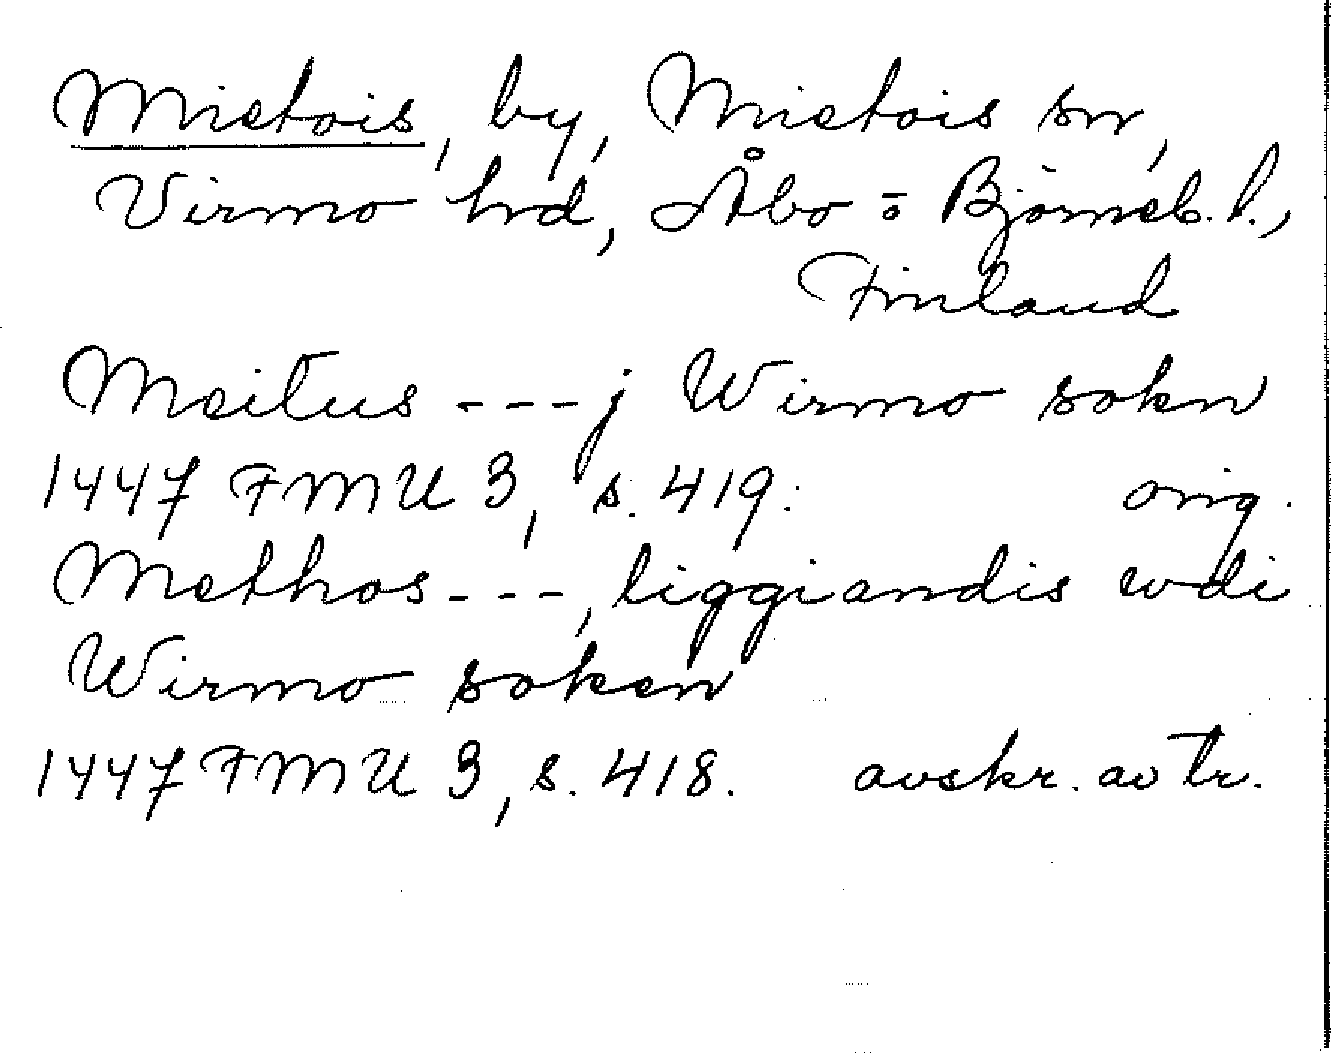 Mietois, by, Mietois sn,
Virmo hrd, Åbo o. Björneb. l.,
Finland
Meitus ---j Wirmo sokn
1447 FMU 3, s. 419. orig.
Methos ---, liggiandis wdi
Wirmo soken
1447 FMU 3, s. 418. avskr. av tr.